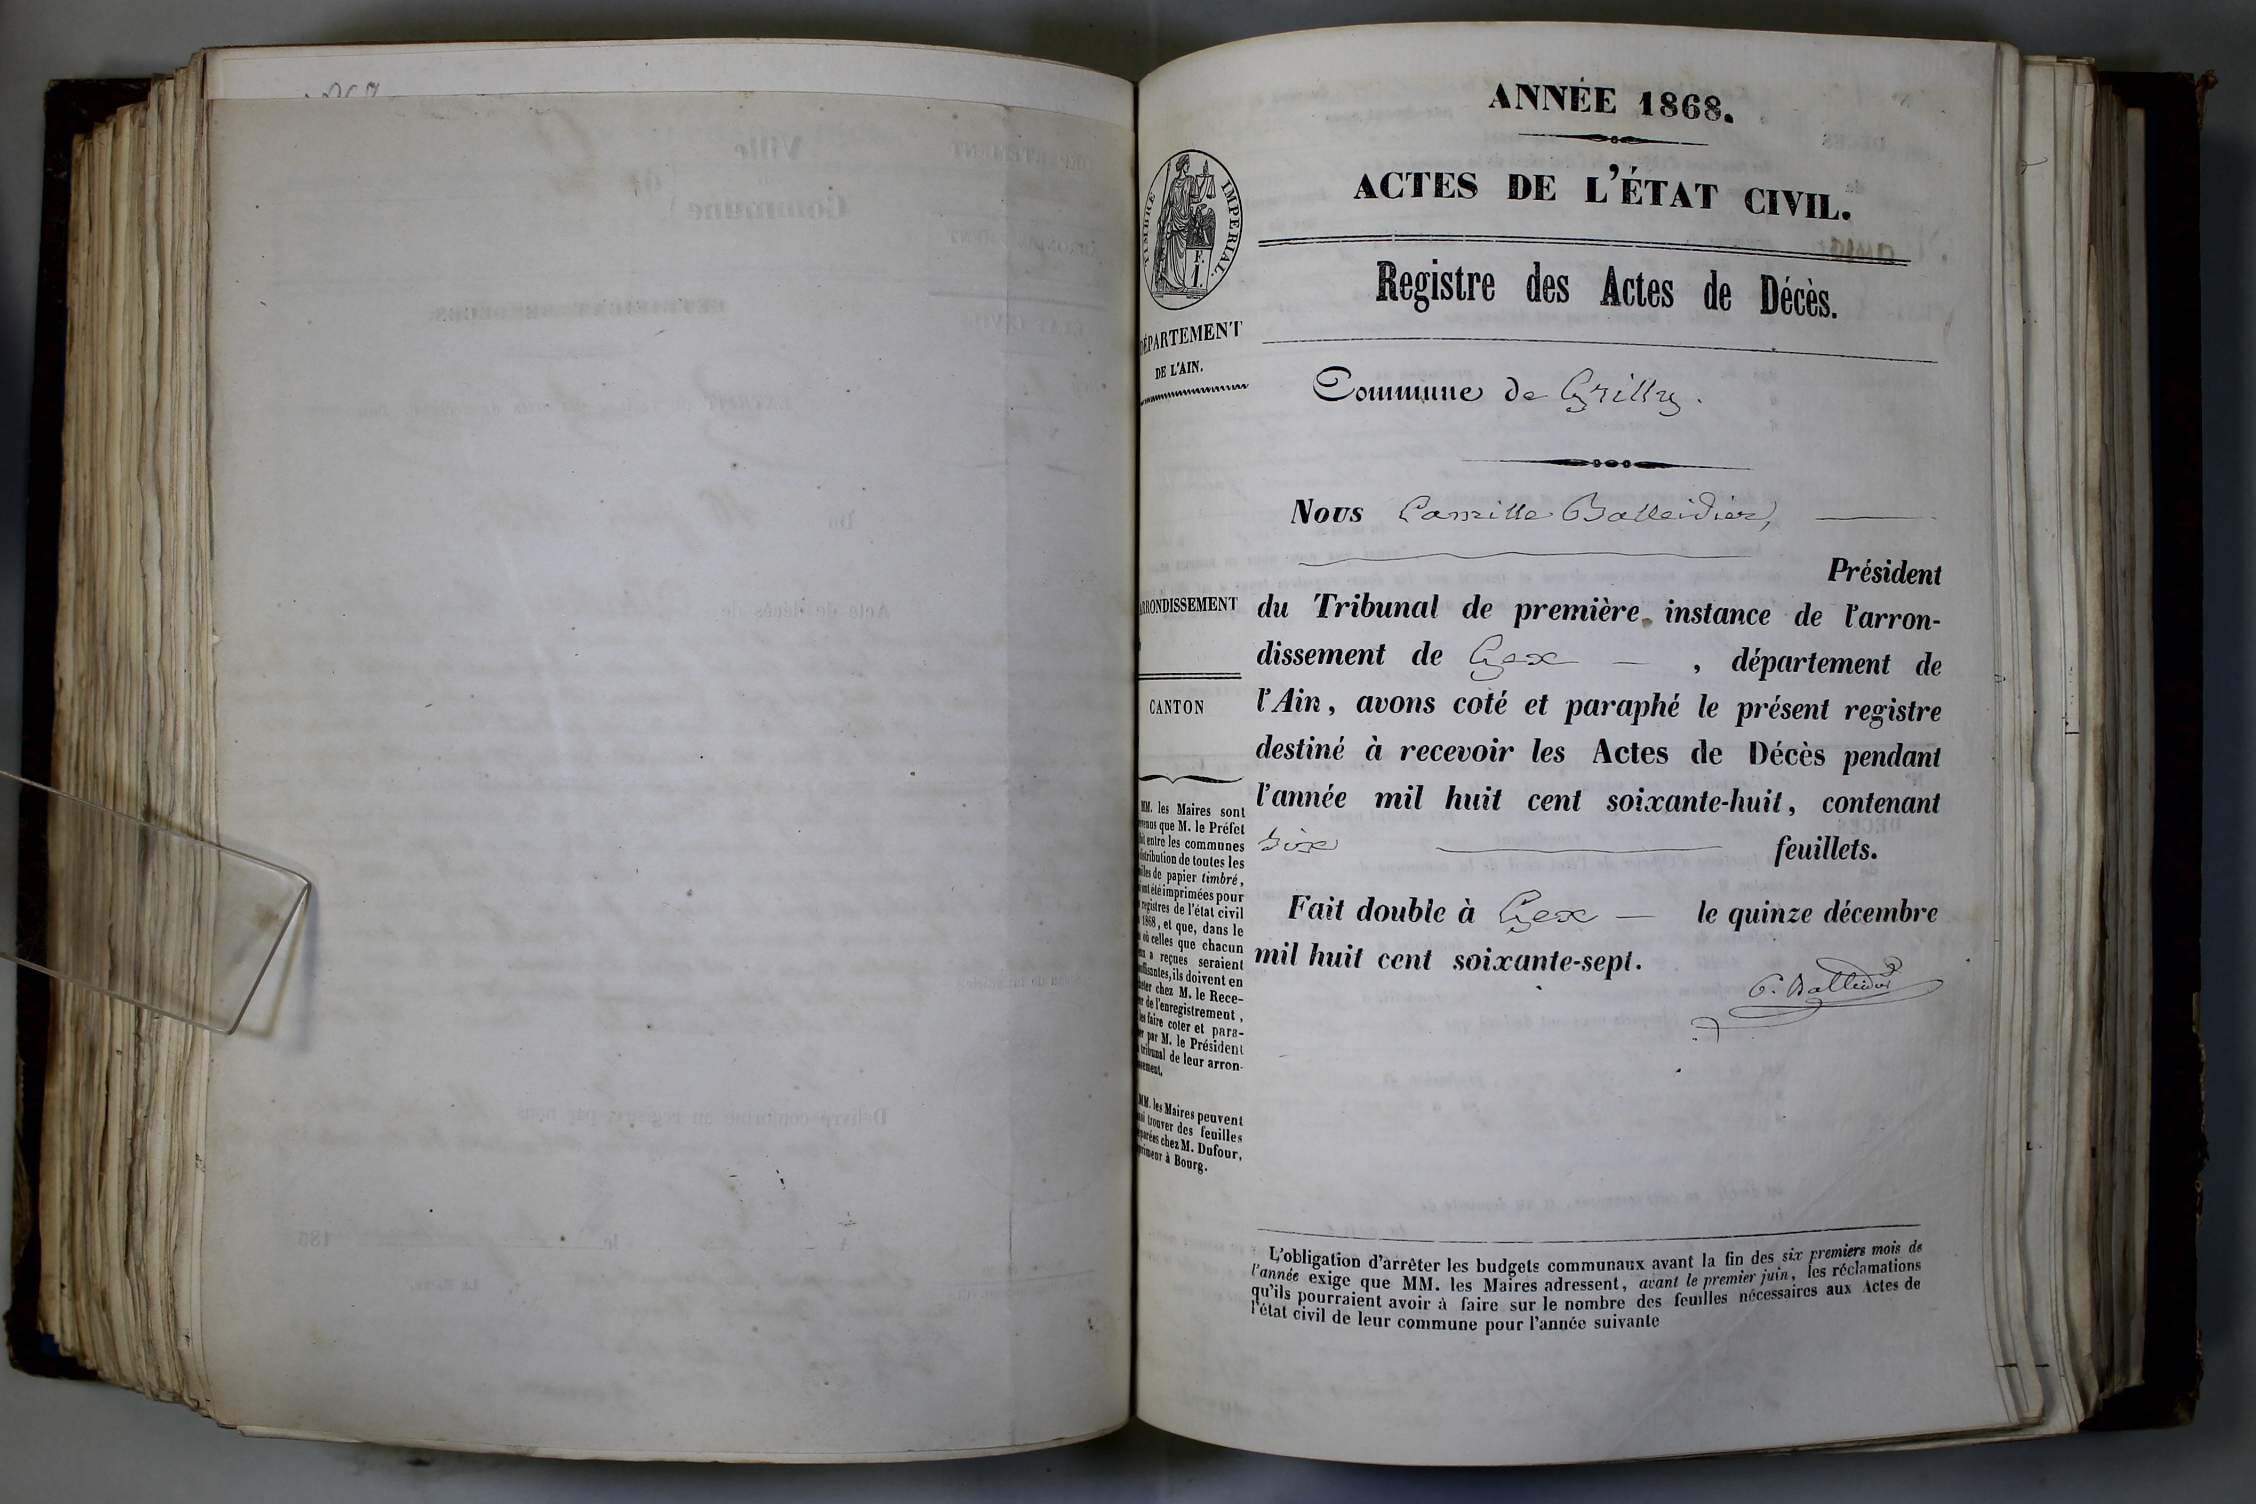 ANNÉE 1868.
ACTES DE L'ÉTAT CIVIL.
Registre des Actes de Décès.
TIMBRE IMPERIAL.
F.
1.
DÉPARTEMENT
DE L'AIN.
Commune de Grilly.
Nous Camille Balleidier,
Président
du Tribunal de première instance de l'arron-
dissement de Gex — , département de
l'Ain, avons coté et paraphé le présent registre
destiné à recevoir les Actes de Décès pendant
l'année mil huit cent soixante-huit, contenant
six feuillets.
Fait double à Gex — le quinze décembre
mil huit cent soixante-sept.
C. Balleidier
ARRONDISSEMENT
CANTON
MM. les Maires sont
que M. le Préfet
entre les communes
distribution de toutes les
de papier timbré,
ont été imprimées pour
registres de l'état civil
1868, et que, dans le
où celles que chacun
a reçues seraient
ils doivent en
chez M. le Rece-
de l'enregistrement,
les faire coter et para-
par M. le Président
tribunal de leur arron-
MM. les Maires peuvent
trouver des feuilles
chez M. Dufour,
à Bourg.
L'obligation d'arrêter les budgets communaux avant la fin des six premiers mois de
l'année exige que MM. les Maires adressent, avant le premier juin, les réclamations
qu'ils pourraient avoir à faire sur le nombre des feuilles nécessaires aux Actes de
l'état civil de leur commune pour l'année suivante